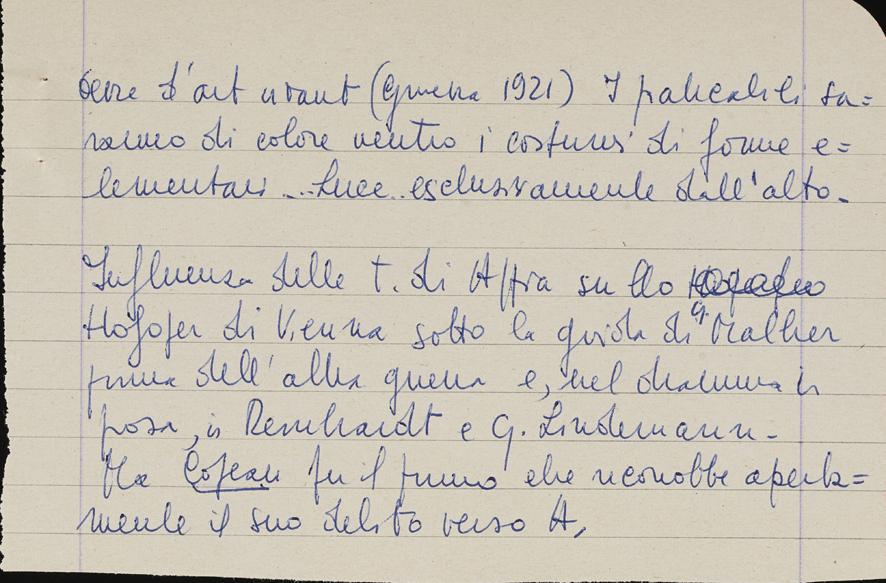 oeuvre d'art vivant (Ginevra 1921) I praticabili sa=
ranno di colore neutro i costumi di forme e=
lementari ... Luce esclusivamente dall'alto.
Influenza delle t. di Appia su llo
Hofoper di Vienna sotto la guida di G. Malher
prima dell'altra guerra e, nel dramma in
prosa, in Reinhardt e G. Lindemann.
Ma Copeau fu il primo che riconobbe aperta=
mente il suo debito verso A,